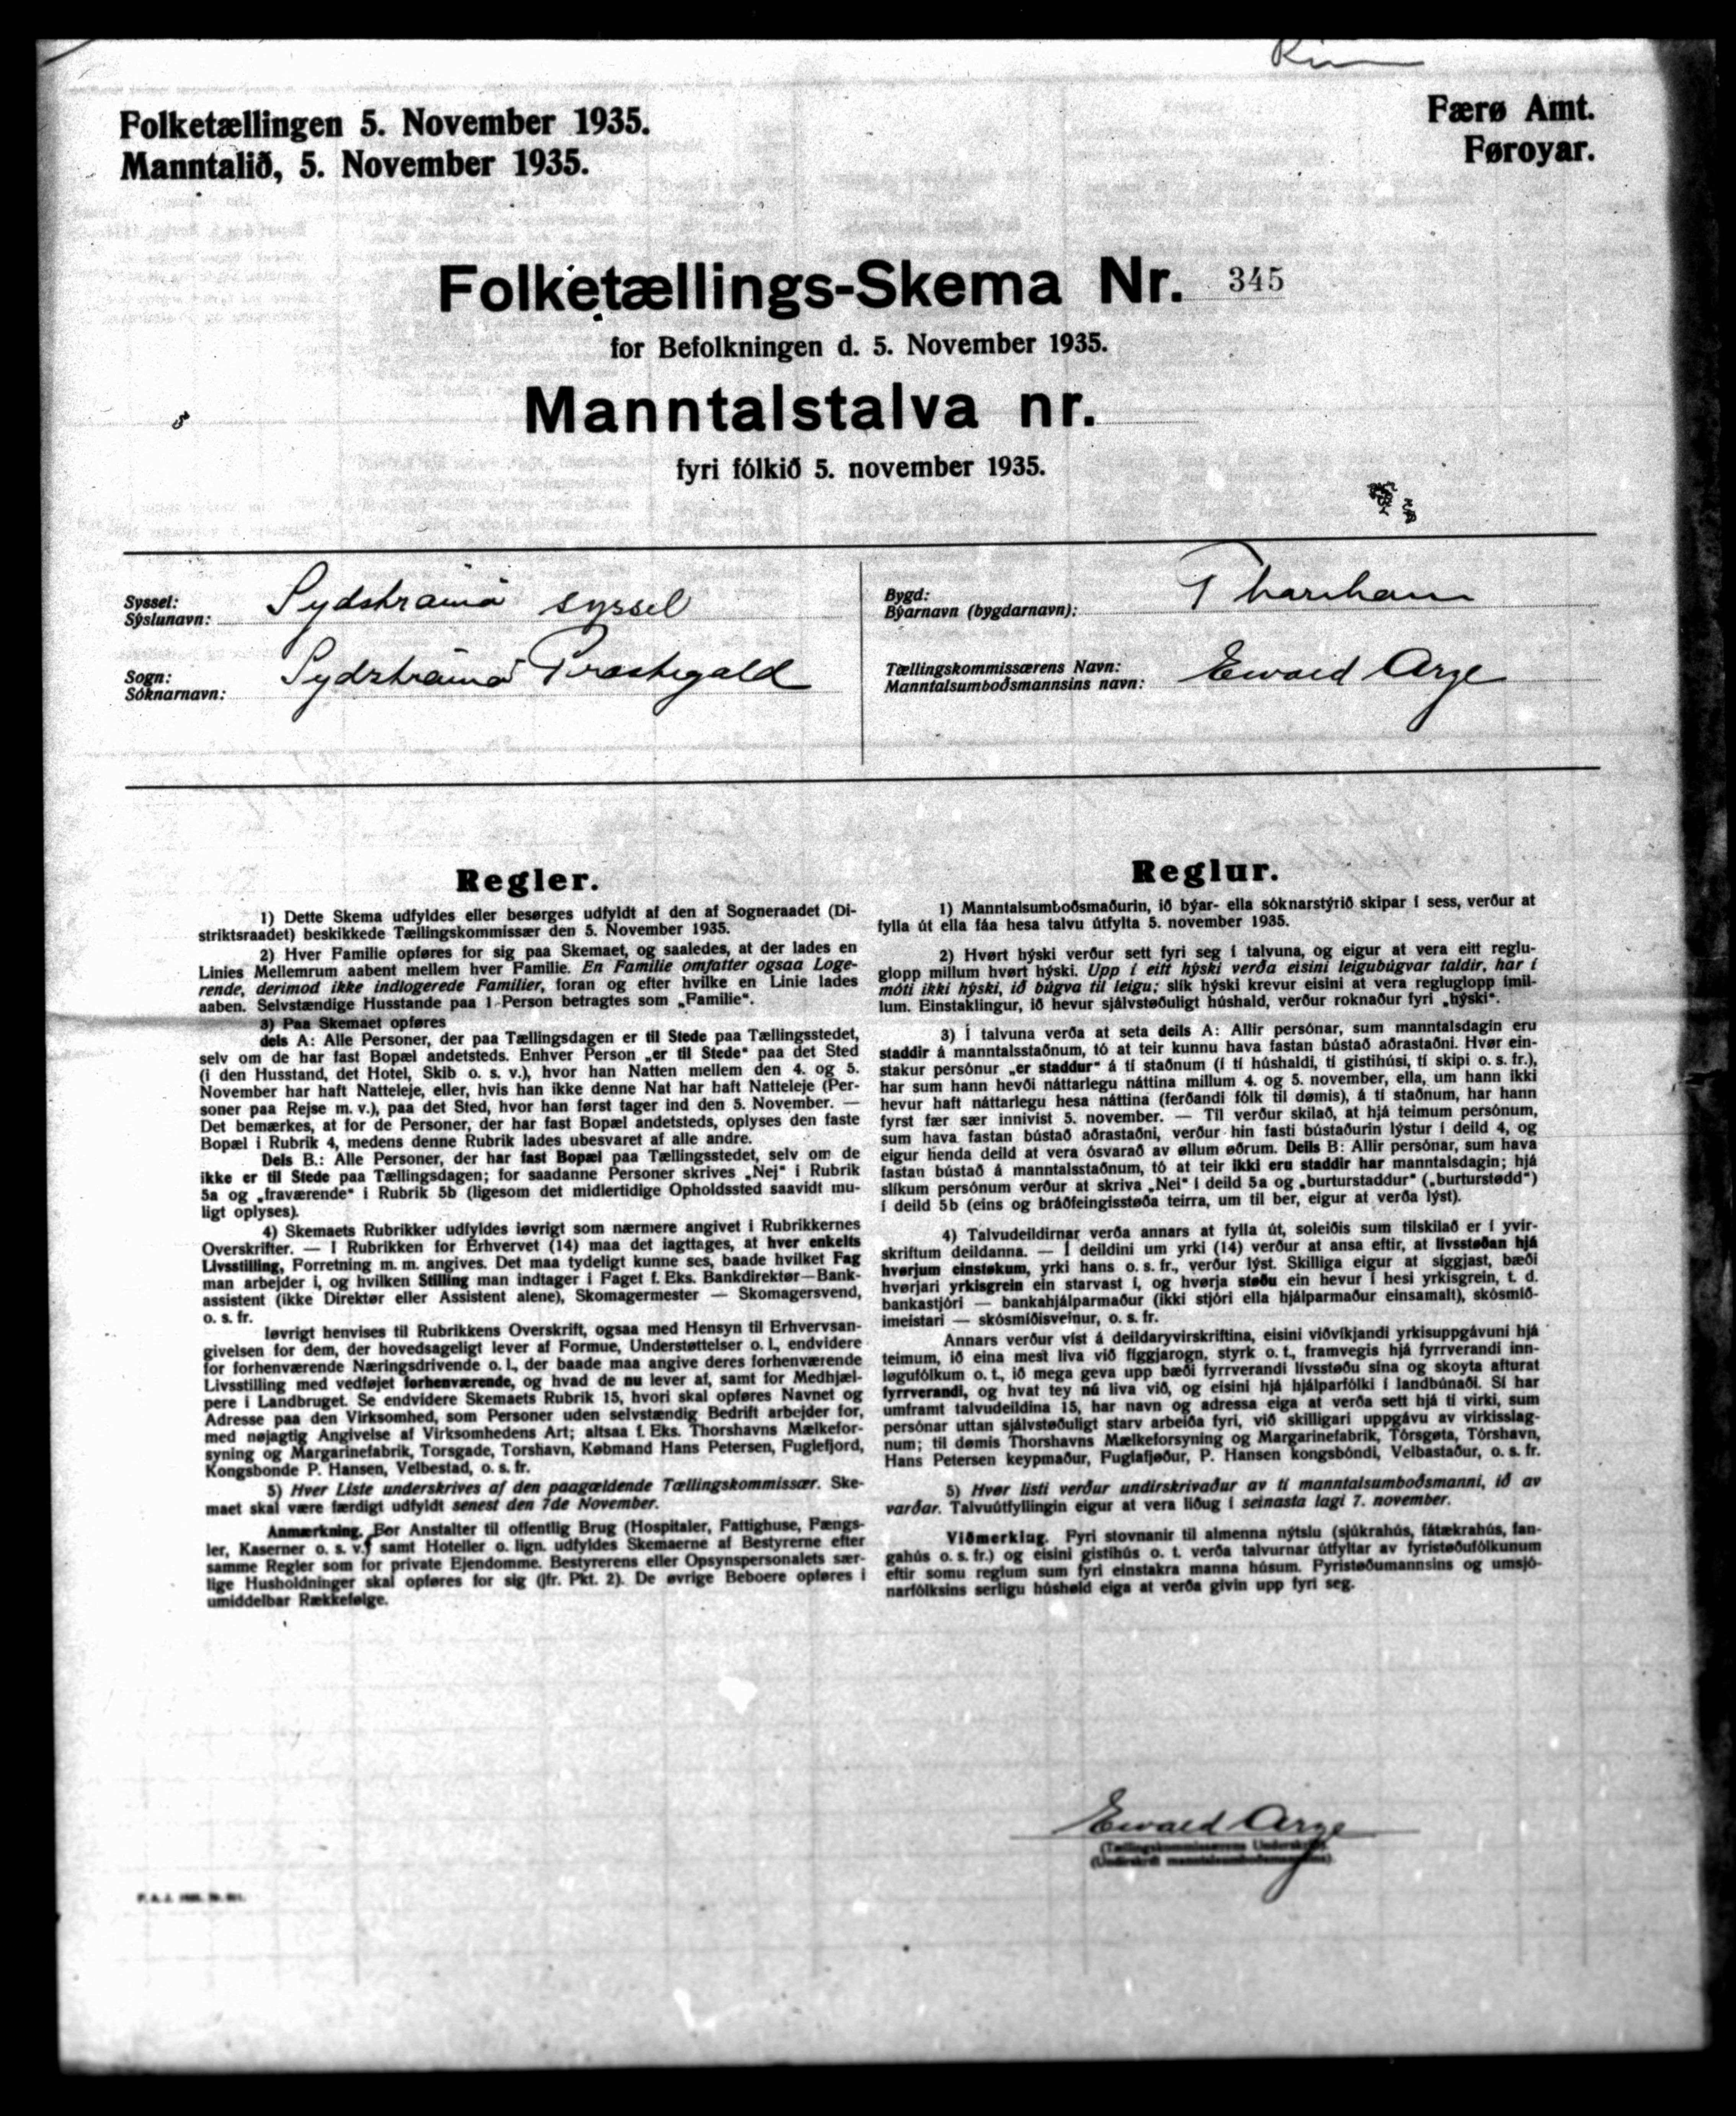 Folketællingen 5. November 1935.
Manntalið, 5. November 1935.
Færø Amt.
Føroyar.
Folketællings-Skema Nr. 345
for Befolkningen d. 5. November 1935.
Manntalstalva nr.
fyri fólkið 5. november 1935.
Syssel:
Sýslunavn:
Sydstrømø syssel
Sogn:
Sóknarnavn:
Sydstrømø Præstegæld
Bygd:
Býarnavn (bygdarnavn):
Thorshavn
Tællingskommissærens Navn:
Manntalsumboðsmannsins navn:
Ewald Arge
Regler.
1) Dette Skema udfyldes eller besørges udfyldt af den af Sogneraadet (Di-
striktsraadet) beskikkede Tællingskommissær den 5. November 1935.
2) Hver Familie opføres for sig paa Skemaet, og saaledes, at der lades en
Linies Mellemrum aabent mellem hver Familie. En Familie omfatter ogsaa Loge-
rende, derimod ikke indlogerede Familier, foran og efter hvilke en Linie lades
aaben. Selvstændige Husstande paa 1 Person betragtes som „Familie“.
3) Paa Skemaet opføres
dels A: Alle Personer, der paa Tællingsdagen er til Stede paa Tællingsstedet,
selv om de har fast Bopæl andetsteds. Enhver Person „er til Stede“ paa det Sted
(i den Husstand, det Hotel, Skib o. s. v.), hvor han Natten mellem den 4. og 5.
November har haft Natteleje, eller, hvis han ikke denne Nat har haft Natteleje (Per-
soner paa Rejse m. v.), paa det Sted, hvor han først tager ind den 5. November. —
Det bemærkes, at for de Personer, der har fast Bopæl andetsteds, oplyses den faste
Bopæl i Rubrik 4, medens denne Rubrik lades ubesvaret af alle andre.
Dels B.: Alle Personer, der har fast Bopæl paa Tællingsstedet, selv om de
ikke er til Stede paa Tællingsdagen; for saadanne Personer skrives „Nej“ i Rubrik
5a og „fraværende“ i Rubrik 5b (ligesom det midlertidige Opholdssted saavidt mu-
ligt oplyses).
4) Skemaets Rubrikker udfyldes iøvrigt som nærmere angivet i Rubrikkernes
Overskrifter. — I Rubrikken for Erhvervet (14) maa det iagttages, at hver enkelts
Livsstilling, Forretning m. m. angives. Det maa tydeligt kunne ses, baade hvilket Fag
man arbejder i, og hvilken Stilling man indtager i Faget f. Eks. Bankdirektør—Bank-
assistent (ikke Direktør eller Assistent alene), Skomagermester — Skomagersvend,
o. s. fr.
Iøvrigt henvises til Rubrikkens Overskrift, ogsaa med Hensyn til Erhvervsan-
givelsen for dem, der hovedsageligt lever af Formue, Understøttelser o. l., endvidere
for forhenværende Næringsdrivende o. l., der baade maa angive deres forhenværende
Livsstilling med vedføjet forhenværende, og hvad de nu lever af, samt for Medhjæl-
pere i Landbruget. Se endvidere Skemaets Rubrik 15, hvori skal opføres Navnet og
Adresse paa den Virksomhed, som Personer uden selvstændig Bedrift arbejder for,
med nøjagtig Angivelse af Virksomhedens Art; altsaa f. Eks. Thorshavns Mælkefor-
syning og Margarinefabrik, Torsgade, Torshavn, Købmand Hans Petersen, Fuglefjord,
Kongsbonde P. Hansen, Velbestad, o. s. fr.
5) Hver Liste underskrives af den paagældende Tællingskommissær. Ske-
maet skal være færdigt udfyldt senest den 7de November.
Anmærkning. For Anstalter til offentlig Brug (Hospitaler, Fattighuse, Fængs-
ler, Kaserner o. s. v.) samt Hoteller o. lign. udfyldes Skemaerne af Bestyrerne efter
samme Regler som for private Ejendomme. Bestyrerens eller Opsynspersonalets sær-
lige Husholdninger skal opføres for sig (jfr. Pkt. 2). De øvrige Beboere opføres i
umiddelbar Rækkefølge.
Reglur.
1) Manntalsumboðsmaðurin, ið býar- ella sóknarstýrið skipar í sess, verður at
fylla út ella fáa hesa talvu útfylta 5. november 1935.
2) Hvørt hýski verður sett fyri seg í talvuna, og eigur at vera eitt reglu-
glopp millum hvørt hýski. Upp í eitt hýski verða eisini leigubúgvar taldir, har í
móti ikki hýski, ið búgva til leigu; slík hýski krevur eisini at vera regluglopp ímil-
lum. Einstaklingur, ið hevur sjálvstøðuligt húshald, verður roknaður fyri „hýski“.
3) Í talvuna verða at seta deils A: Allir persónar, sum manntalsdagin eru
staddir á manntalsstaðnum, tó at teir kunnu hava fastan bústað aðrastaðni. Hvør ein-
stakur persónur „er staddur“ á tí staðnum (í tí húshaldi, tí gistihúsi, tí skipi o. s. fr.),
har sum hann hevði náttarlegu náttina millum 4. og 5. november, ella, um hann ikki
hevur haft náttarlegu hesa náttina (ferðandi fólk til dømis), á tí staðnum, har hann
fyrst fær sær innivist 5. november. — Til verður skilað, at hjá teimum persónum,
sum hava fastan bústað aðrastaðni, verður hin fasti bústaðurin lýstur í deild 4, og
eigur henda deild at vera ósvarað av øllum øðrum. Deils B: Allir persónar, sum hava
fastan bústað á manntalsstaðnum, tó at teir ikki eru staddir har manntalsdagin; hjá
slíkum persónum verður at skriva „Nei“ í deild 5a og „burturstaddur“ („burturstødd“)
í deild 5b (eins og bráðfeingisstøða teirra, um til ber, eigur at verða lýst).
4) Talvudeildirnar verða annars at fylla út, soleiðis sum tilskilað er í yvir-
skriftum deildanna. — Í deildini um yrki (14) verður at ansa eftir, at livsstøðan hjá
hvørjum einstøkum, yrki hans o. s. fr., verður lýst. Skilliga eigur at siggjast, bæði
hvørjari yrkisgrein ein starvast í, og hvørja støðu ein hevur í hesi yrkisgrein, t. d.
bankastjóri — bankahjálparmaður (ikki stjóri ella hjálparmaður einsamalt), skósmið-
imeistari — skósmiðisveinur, o. s. fr.
Annars verður víst á deildaryvirskriftina, eisini viðvíkjandi yrkisuppgávuni hjá
teimum, ið eina mest liva við figgjarogn, styrk o. t., framvegis hjá fyrrverandi inn-
løgufólkum o. t., ið mega geva upp bæði fyrrverandi livsstøðu sína og skoyta afturat
fyrrverandi, og hvat tey nú liva við, og eisini hjá hjálparfólki í landbúnaði. Sí har
umframt talvudeildina 15, har navn og adressa eiga at verða sett hjá tí virki, sum
persónar uttan sjálvstøðuligt starv arbeiða fyri, við skilligari uppgávu av virkisslag-
num; til dømis Thorshavns Mælkeforsyning og Margarinefabrik, Tórsgøta, Tórshavn,
Hans Petersen keypmaður, Fuglafjøður, P. Hansen kongsbóndi, Velbastaður, o. s. fr.
5) Hvør listi verður undirskrivaður av tí manntalsumboðsmanni, ið av
varðar. Talvuútfyllingin eigur at vera liðug í seinasta lagi 7. november.
Viðmerking. Fyri stovnanir til almenna nýtslu (sjúkrahús, fátækrahús, fan-
gahús o. s. fr.) og eisini gistihús o. t. verða talvurnar útfyltar av fyristøðufólkunum
eftir somu reglum sum fyri einstakra manna húsum. Fyristøðumannsins og umsjó-
narfólksins serligu húshøld eiga at verða givin upp fyri seg.
Ewald Arge
(Tællingskommissærens Underskrift)
(Undirskrift manntalsumboðsmannsins)